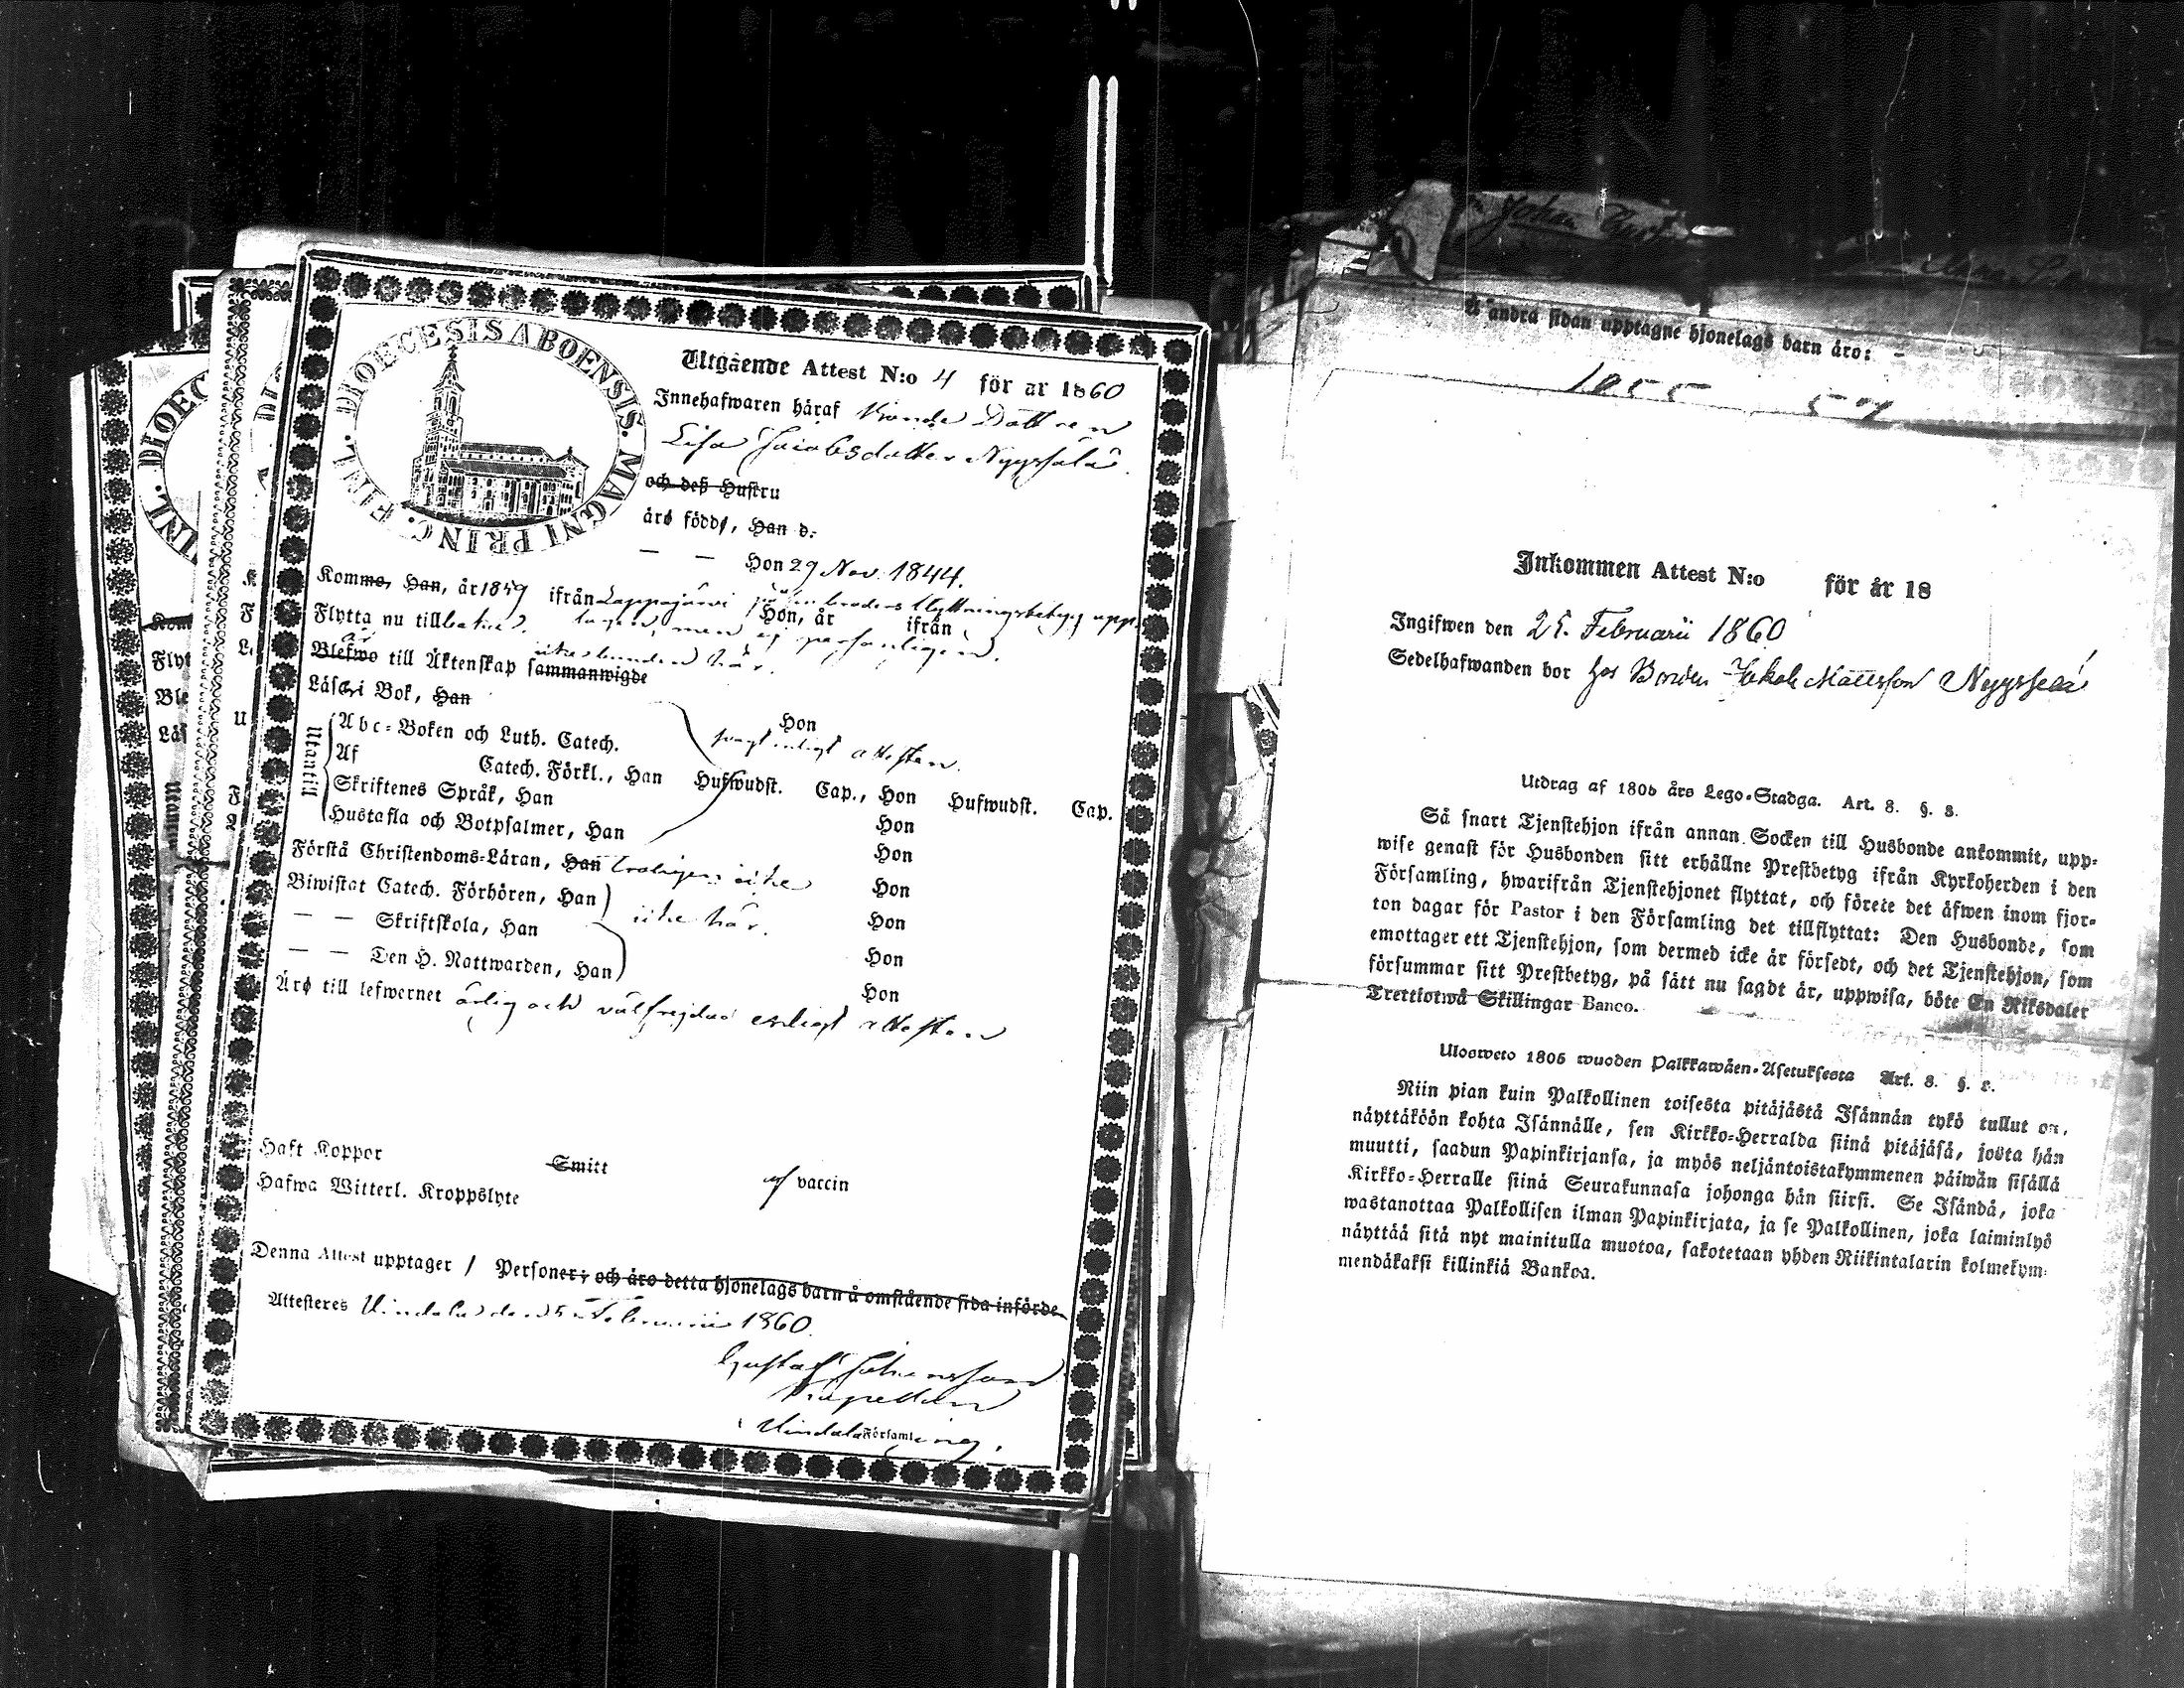 DIOECESIS ABOENSIS. MAGNI PRINC. FINL.
Utgående Attest N:o 4 för år 1860
Innehafwaren häraf Bonde Dottren
Lisa Jacobsdotter Nyyssälä.
och deß Hustru
äro födde, Han d.
— — Hon 29 Nov. 1844.
Kommo, Han, år 1859 ifrån Lappajärvi på en broders flyttningsbetyg upp-
Hon, år ifrån
Flytta nu till baka. tagen, men ej personligen.
är icke bunden här.
Blefwo till Äktenskap sammanwigde
Läser i Bok, Han Hon
svagt enligt attesten.
Utantill
Abc-Boken och Luth. Catech.
Af Catech. Förkl., Han Hufwudst. Cap., Hon Hufwudst. Cap.
Skriftenes Språk, Han Hon
Hustafla och Botpsalmer, Han Hon
Förstå Christendoms-Läran, Han troligen icke Hon
Biwistat Catech. Förhören, Han Hon
icke här.
— — Skriftskola, Han Hon
— — Den H. Nattwarden, Han Hon
Äro till lefwernet ärlig och välfrejdad enligt attesten
Haft Koppor Smitt af vaccin
Hafwa Witterl. Kroppslyte
Denna Attest upptager 1 Personer; och äro detta hjonelags barn å omstående sida införde.
Attesteres Vindala den 25 Februarii 1860.
Gustaf Johansson
Kapellan
Vindala Församling.
Å andra sidan upptagne hjonelags barn äro:
1855 57
Inkommen Attest N:o för år 18
Ingifwen den 25. Februarii 1860
Sedelhafwanden bor hos Bonden Jakob Mattsson Nyyssälä
Utdrag af 1805 års Lego-Stadga. Art. 8. §. 8.
Så snart Tjenstehjon ifrån annan Socken till Husbonde ankommit, upp-
wise genast för Husbonden sitt erhållne Prestbetyg ifrån Kyrkoherden i den
Församling, hwarifrån Tjenstehjonet flyttat, och förete det äfwen inom fjor-
ton dagar för Pastor i den Församling det tillflyttat: Den Husbonde, som
emottager ett Tjenstehjon, som dermed icke är försedt, och det Tjenstehjon, som
försummar sitt Prestbetyg, på sätt nu sagdt är, uppwisa, böte En Riksdaler
Trettiotwå Skillingar Banco.
Uloosweto 1805 wuoden Palkkawäen-Asetuksesta Art. 8. §. 8.
Niin pian kuin Palkollinen toisesta pitäjästä Isännän tykö tullut on,
näyttäköön kohta Isännälle, sen Kirkko-Herralda siinä pitäjäsä, josta hän
muutti, saadun Papinkirjansa, ja myös neljäntoistakymmenen päiwän sisällä
Kirkko-Herralle siinä Seurakunnasa johonga hän siirsi. Se Isändä, joka
wastanottaa Palkollisen ilman Papinkirjata, ja se Palkollinen, joka laiminlyö
näyttää sitä nyt mainitulla muotoa, sakotetaan yhden Riikintalarin kolmekym-
mendäkaksi killinkiä Bankoa.